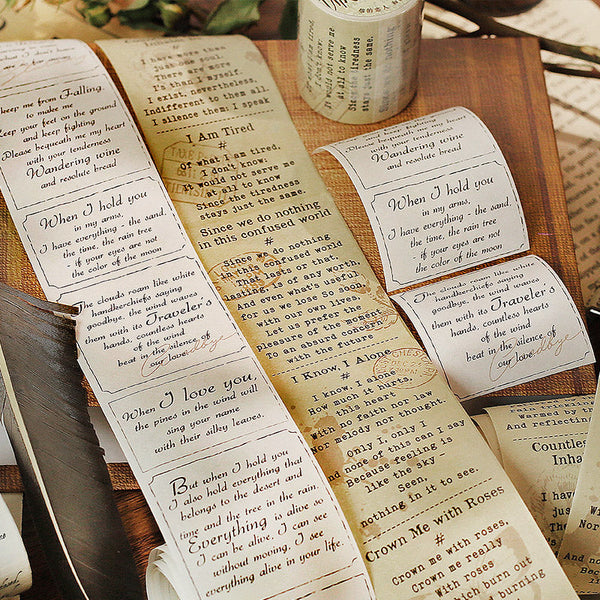 keep me from Falling,
to make me
Keep your feet on the ground
and keep fighting
Please bequeath me my heart
with your tenderness
Wandering wine
and resolute bread
When I hold you
in my arms,
I have everything - the sand,
the time, the rain tree
- if your eyes are not
the color of the moon
The clouds roam like white
handkerchiefs saying
goodbye, the wind waves
them with its Traveler's
hands, countless hearts
of the wind
beat in the silence of
our love
When I love you,
the pines in the wind will
sing your name
with their silky leaves.
But when I hold you
I also hold everything that
belongs to the desert and
time and the tree in the rain.
Everything is alive so
I can be alive. I can see
without moving, I see
everything alive in your life.
I have more than just one soul.
There are more
I's than I myself.
I exist, nevertheless,
Indifferent to them all.
I silence them: I speak
I Am Tired
#
of what I am tired,
I don't know:
It would not serve me
at all to know
Since the tiredness
stays just the same.
Since we do nothing
in this confused world
#
Since we do nothing
in this confused world
That lasts or that,
lasting, is of any worth,
And even what's useful
for us we lose So soon,
with our own lives,
Let us prefer the
pleasure of the moment
To an absurd concern
with the future
I Know, I Alone
#
I know, I alone
How much it hurts,
this heart
With no faith nor law
Nor melody nor thought.
Only I, only I
and none of this can I say
Because feeling is
like the sky
Seen,
nothing in it to see.
Crown Me with Roses
#
Crown me with roses,
Crown me really
With roses
which burn out
I don't know:
It would not serve me
at all to know
Since the tiredness
stays just the same.
Please bequeath me my heart
with your tenderness
Wandering wine
and resolute bread
When I hold you
in my arms,
I have everything - the sand,
the time, the rain tree
- if your eyes are not
the color of the moon
The clouds roam like white
handkerchiefs saying
goodbye, the wind waves
them with its Traveler's
hands, countless hearts
of the wind
beat in the silence of
our love
Warmed by
And reflecting
Countless
I have